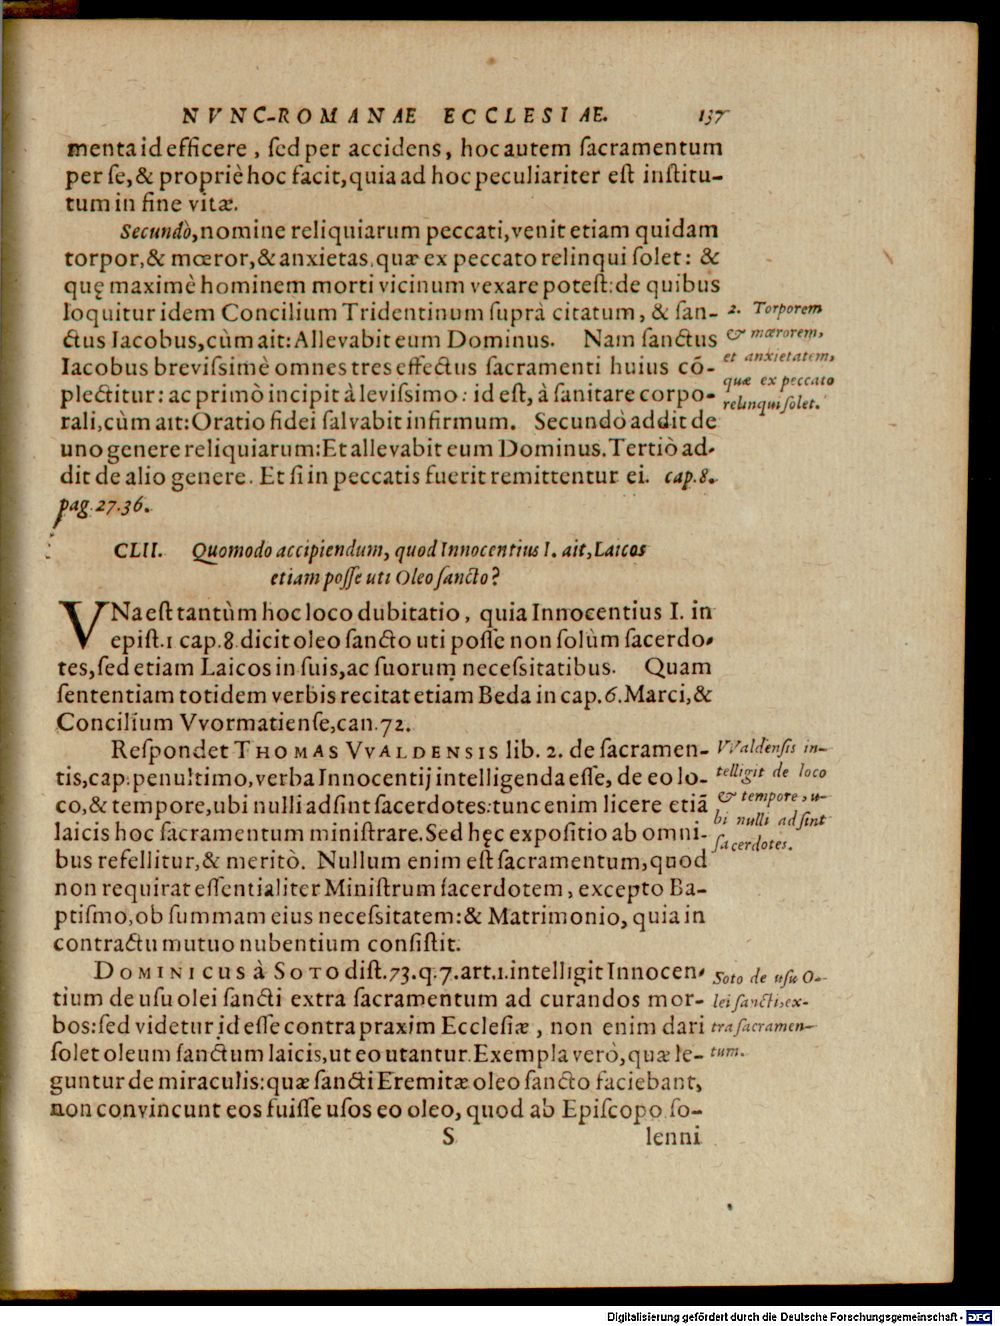 NVNC-ROMANAE ECCLESIAE. 137
menta id efficere, ſed per accidens, hoc autem ſacramentum
per ſe, & propriè hoc facit, quia ad hoc peculiariter eſt inſtitu-
tum in fine vitæ.
Secundò, nomine reliquiarum peccati, venit etiam quidam
torpor, & mœror, & anxietas, quæ ex peccato relinqui ſolet: &
quę maximè hominem morti vicinum vexare poteſt: de quibus
loquitur idem Concilium Tridentinum ſuprà citatum, & ſan-
ctus Iacobus, cùm ait: Allevabit eum Dominus. Nam ſanctus
Iacobus breviſsimè omnes tres effectus ſacramenti huius cõ-
plectitur: ac primò incipit à leviſsimo: id eſt, à ſanitare corpo-
rali, cùm ait: Oratio fidei ſalvabit infirmum. Secundò addit de
uno genere reliquiarum: Et allevabit eum Dominus. Tertiò ad-
dit de alio genere. Et ſi in peccatis fuerit remittentur ei. cap. 8.
pag. 27. 36.
2. Torporem
& mœrorem,
et anxietatem,
quæ ex peccato
relinqui ſolet.
CLII. Quomodo accipiendum, quod Innocentius I. ait, Laicos
etiam poſſe uti Oleo ſancto?
VNa eſt tantùm hoc loco dubitatio, quia Innocentius I. in
epiſt. 1 cap. 8. dicit oleo ſancto uti poſſe non ſolùm ſacerdo-
tes, ſed etiam Laicos in ſuis, ac ſuorum neceſsitatibus. Quam
ſententiam totidem verbis recitat etiam Beda in cap. 6. Marci, &
Concilium Vvormatienſe, can. 72.
Reſpondet THOMAS VVALDENSIS lib. 2. de ſacramen-
tis, cap. penultimo, verba Innocentij intelligenda eſſe, de eo lo-
co, & tempore, ubi nulli adſint ſacerdotes: tunc enim licere etiã
laicis hoc ſacramentum miniſtrare. Sed hęc expoſitio ab omni-
bus refellitur, & meritò. Nullum enim eſt ſacramentum, quod
non requirat eſſentialiter Miniſtrum ſacerdotem, excepto Ba-
ptiſmo, ob ſummam eius neceſsitatem: & Matrimonio, quia in
contractu mutuo nubentium conſiſtit.
VValdenſis in-
telligit de loco
& tempore, u-
bi nulli adſint
ſacerdotes.
DOMINICUS à SOTO diſt. 73. q. 7. art. 1. intelligit Innocen-
tium de uſu olei ſancti extra ſacramentum ad curandos mor-
bos: ſed videtur id eſſe contra praxim Eccleſiæ, non enim dari
ſolet oleum ſanctum laicis, ut eo utantur. Exempla verò, quæ le-
guntur de miraculis: quæ ſancti Eremitæ oleo ſancto faciebant,
non convincunt eos fuiſſe uſos eo oleo, quod ab Epiſcopo ſo-
Soto de uſu O-
lei ſancti, ex-
tra ſacramen-
tum.
S lenni
Digitalisierung gefördert durch die Deutsche Forschungsgemeinschaft - DFG